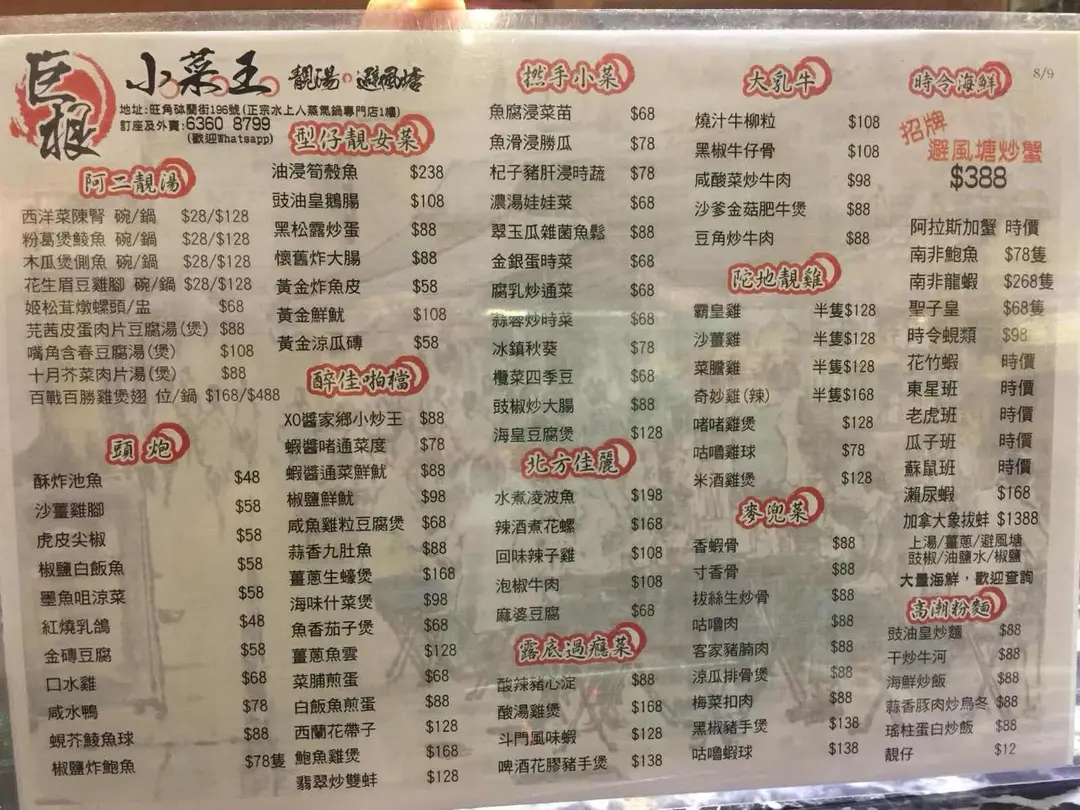 巨根
小菜王 靚湯。避風塘
地址:旺角砵蘭街196號(正宗水上人蒸氣鍋專門店1樓)
訂座及外賣:6360 8799
(歡迎Whatsapp)
阿二靚湯
西洋菜陳腎 碗/鍋 $28/$128
粉葛煲鯪魚 碗/鍋 $28/$128
木瓜煲側魚 碗/鍋 $28/$128
花生眉豆雞腳 碗/鍋 $28/$128
姬松茸燉螺頭/盅 $68
芫茜皮蛋肉片豆腐湯(煲) $88
嘴角含春豆腐湯(煲) $108
十月芥菜肉片湯(煲) $88
百戰百勝雞煲翅 位/鍋 $168/$488
頭炮
酥炸池魚 $48
沙薑雞腳 $58
虎皮尖椒 $58
椒鹽白飯魚 $58
墨魚咀涼菜 $58
紅燒乳鴿 $48
金磚豆腐 $58
口水雞 $68
咸水鴨 $78
蜆芥鯪魚球 $88
椒鹽炸鮑魚 $78隻
型仔靚女菜
油浸筍殼魚 $238
豉油皇鵝腸 $108
黑松露炒蛋 $88
懷舊炸大腸 $88
黃金炸魚皮 $58
黃金鮮魷 $108
黃金涼瓜磚 $58
醉佳啪檔
XO醬家鄉小炒王 $88
蝦醬啫通菜度 $78
蝦醬通菜鮮魷 $88
椒鹽鮮魷 $98
咸魚雞粒豆腐煲 $68
蒜香九肚魚 $88
薑蔥生蠔煲 $168
海味什菜煲 $98
魚香茄子煲 $68
薑蔥魚雲 $128
菜脯煎蛋 $68
白飯魚煎蛋 $88
西蘭花帶子 $128
鮑魚雞煲 $168
翡翠炒雙蚌 $128
撚手小菜
魚腐浸菜苗 $68
魚滑浸勝瓜 $78
杞子豬肝浸時蔬 $78
濃湯娃娃菜 $68
翠玉瓜雜菌魚鬆 $88
金銀蛋時菜 $68
腐乳炒通菜 $68
蒜蓉炒時菜 $68
冰鎮秋葵 $78
欖菜四季豆 $68
豉椒炒大腸 $88
海皇豆腐煲 $128
北方佳麗
水煮凌波魚 $198
辣酒煮花螺 $168
回味辣子雞 $108
泡椒牛肉 $108
麻婆豆腐 $68
露底過癮菜
酸辣豬心淀 $88
酸湯雞煲 $168
斗門風味蝦 $128
啤酒花膠豬手煲 $138
大乳牛
燒汁牛柳粒 $108
黑椒牛仔骨 $108
咸酸菜炒牛肉 $98
沙爹金菇肥牛煲 $88
豆角炒牛肉 $88
陀地靚雞
霸皇雞 半隻$128
沙薑雞 半隻$128
菜膽雞 半隻$128
奇妙雞(辣) 半隻$168
啫啫雞煲 $128
咕嚕雞球 $78
米酒雞煲 $128
麥兜菜
香蝦骨 $88
寸香骨 $88
拔絲生炒骨 $88
咕嚕肉 $88
客家豬腩肉 $88
涼瓜排骨煲 $88
梅菜扣肉 $88
黑椒豬手煲 $138
咕嚕蝦球 $138
時令海鮮
8/9
招牌
避風塘炒蟹
$388
阿拉斯加蟹 時價
南非鮑魚 $78隻
南非龍蝦 $268隻
聖子皇 $68隻
時令蜆類 $98
花竹蝦 時價
東星班 時價
老虎班 時價
瓜子班 時價
蘇鼠班 時價
瀨尿蝦 $168
加拿大象拔蚌 $1388
上湯/薑蔥/避風塘
豉椒/油鹽水/椒鹽
大量海鮮，歡迎查詢
高潮粉麵
豉油皇炒麵 $88
干炒牛河 $88
海鮮炒飯 $88
蒜香豚肉炒烏冬 $88
瑤柱蛋白炒飯 $88
靚仔 $12